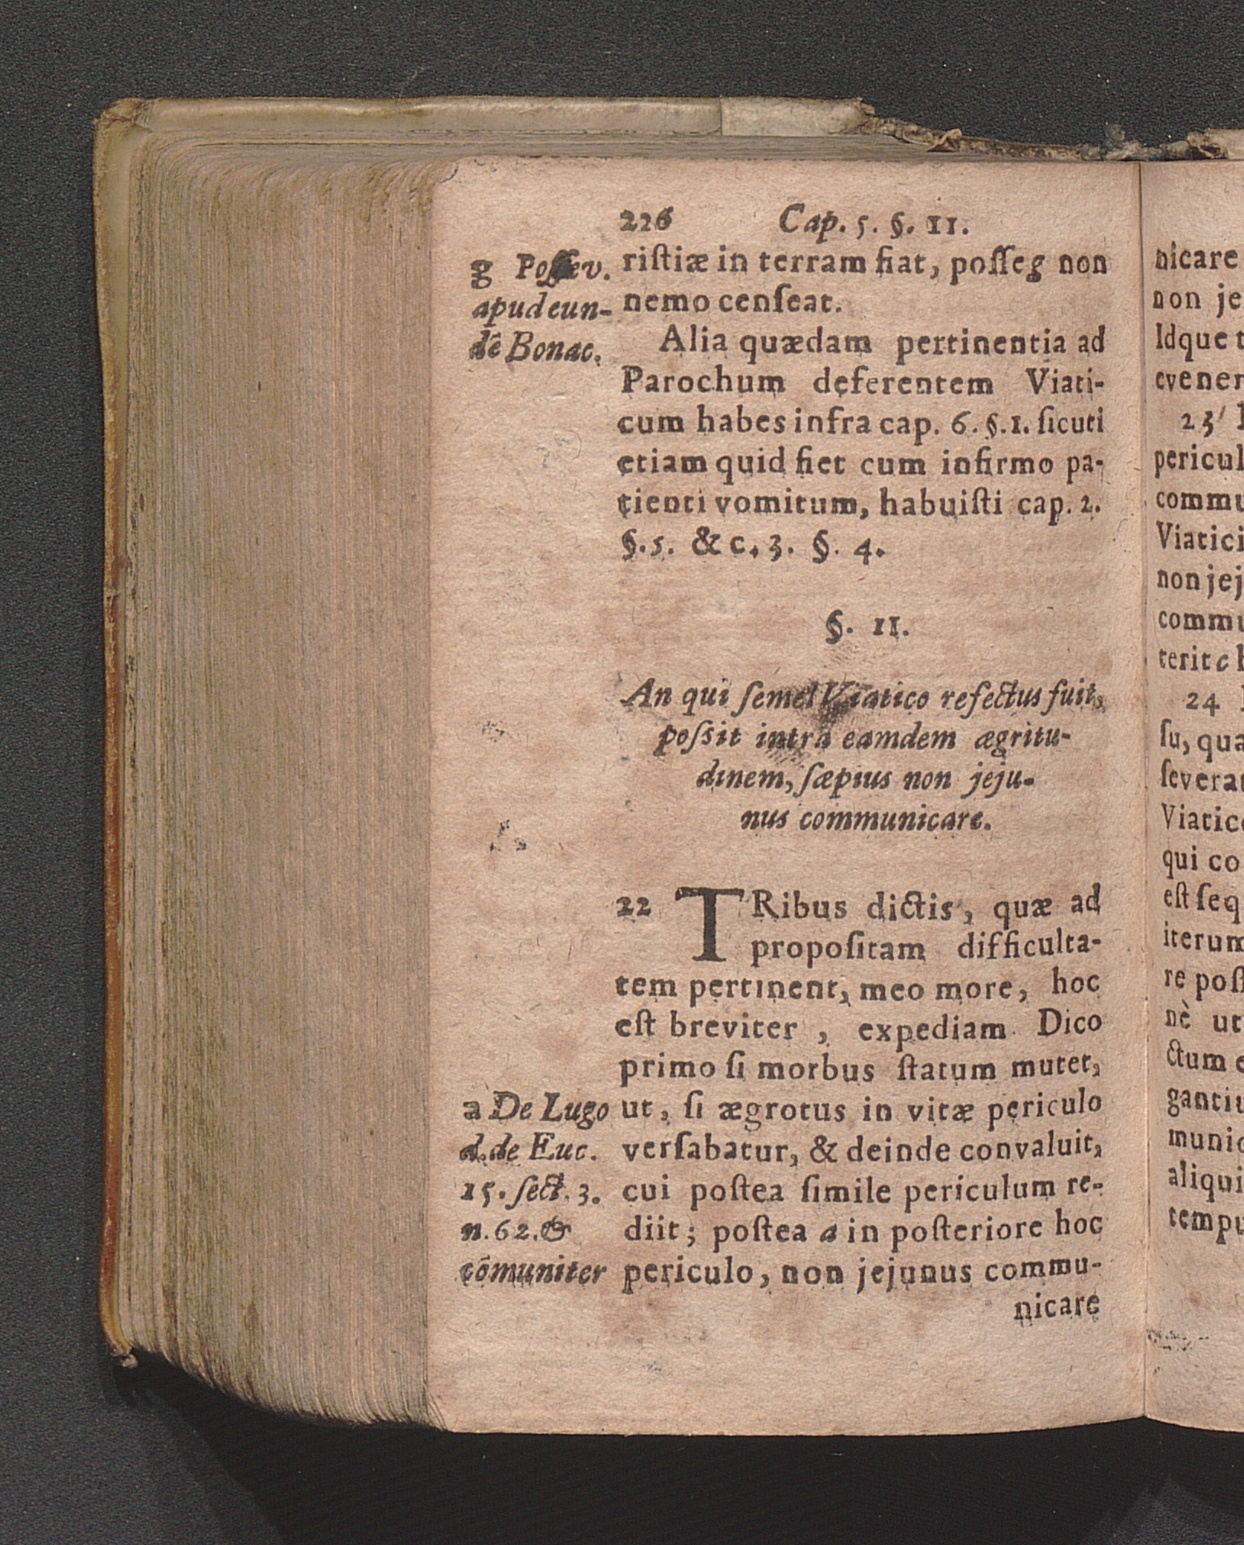 226 Cap. 5. §. 11.
g Possev.
apud eun-
dē Bonac.
ristiæ in terram fiat, posse g non
nemo censeat.
Alia quædam pertinentia ad
Parochum deferentem Viati-
cum habes infra cap. 6. §. 1. sicuti
etiam quid fiet cum infirmo pa-
tienti vomitum, habuisti cap. 2.
§. 5. & c. 3. §. 4.
§. 11.
An qui semel Viatico refectus fuit,
possit intra eamdem ægritu-
dinem, sæpius non jeju-
nus communicare.
22 TRibus dictis, quæ ad
propositam difficulta-
tem pertinent, meo more, hoc
est breviter, expediam. Dico
primo si morbus statum mutet,
ut, si ægrotus in vitæ periculo
versabatur, & deinde convaluit,
cui postea simile periculum re-
diit; postea a in posteriore hoc
periculo, non jejunus commu-
nicare
a De Lugo
d. de Euc.
15. sect. 3.
n. 62. &
cōmuniter
nicare
non je
Idque t
evener
23
pericul
commu
Viatici
non jej
commu
terit c
24
su, qua
severa
Viatic
qui co
est seq
iterum
re pos
nè ut
ctum
gantiu
munic
aliqui
tempu